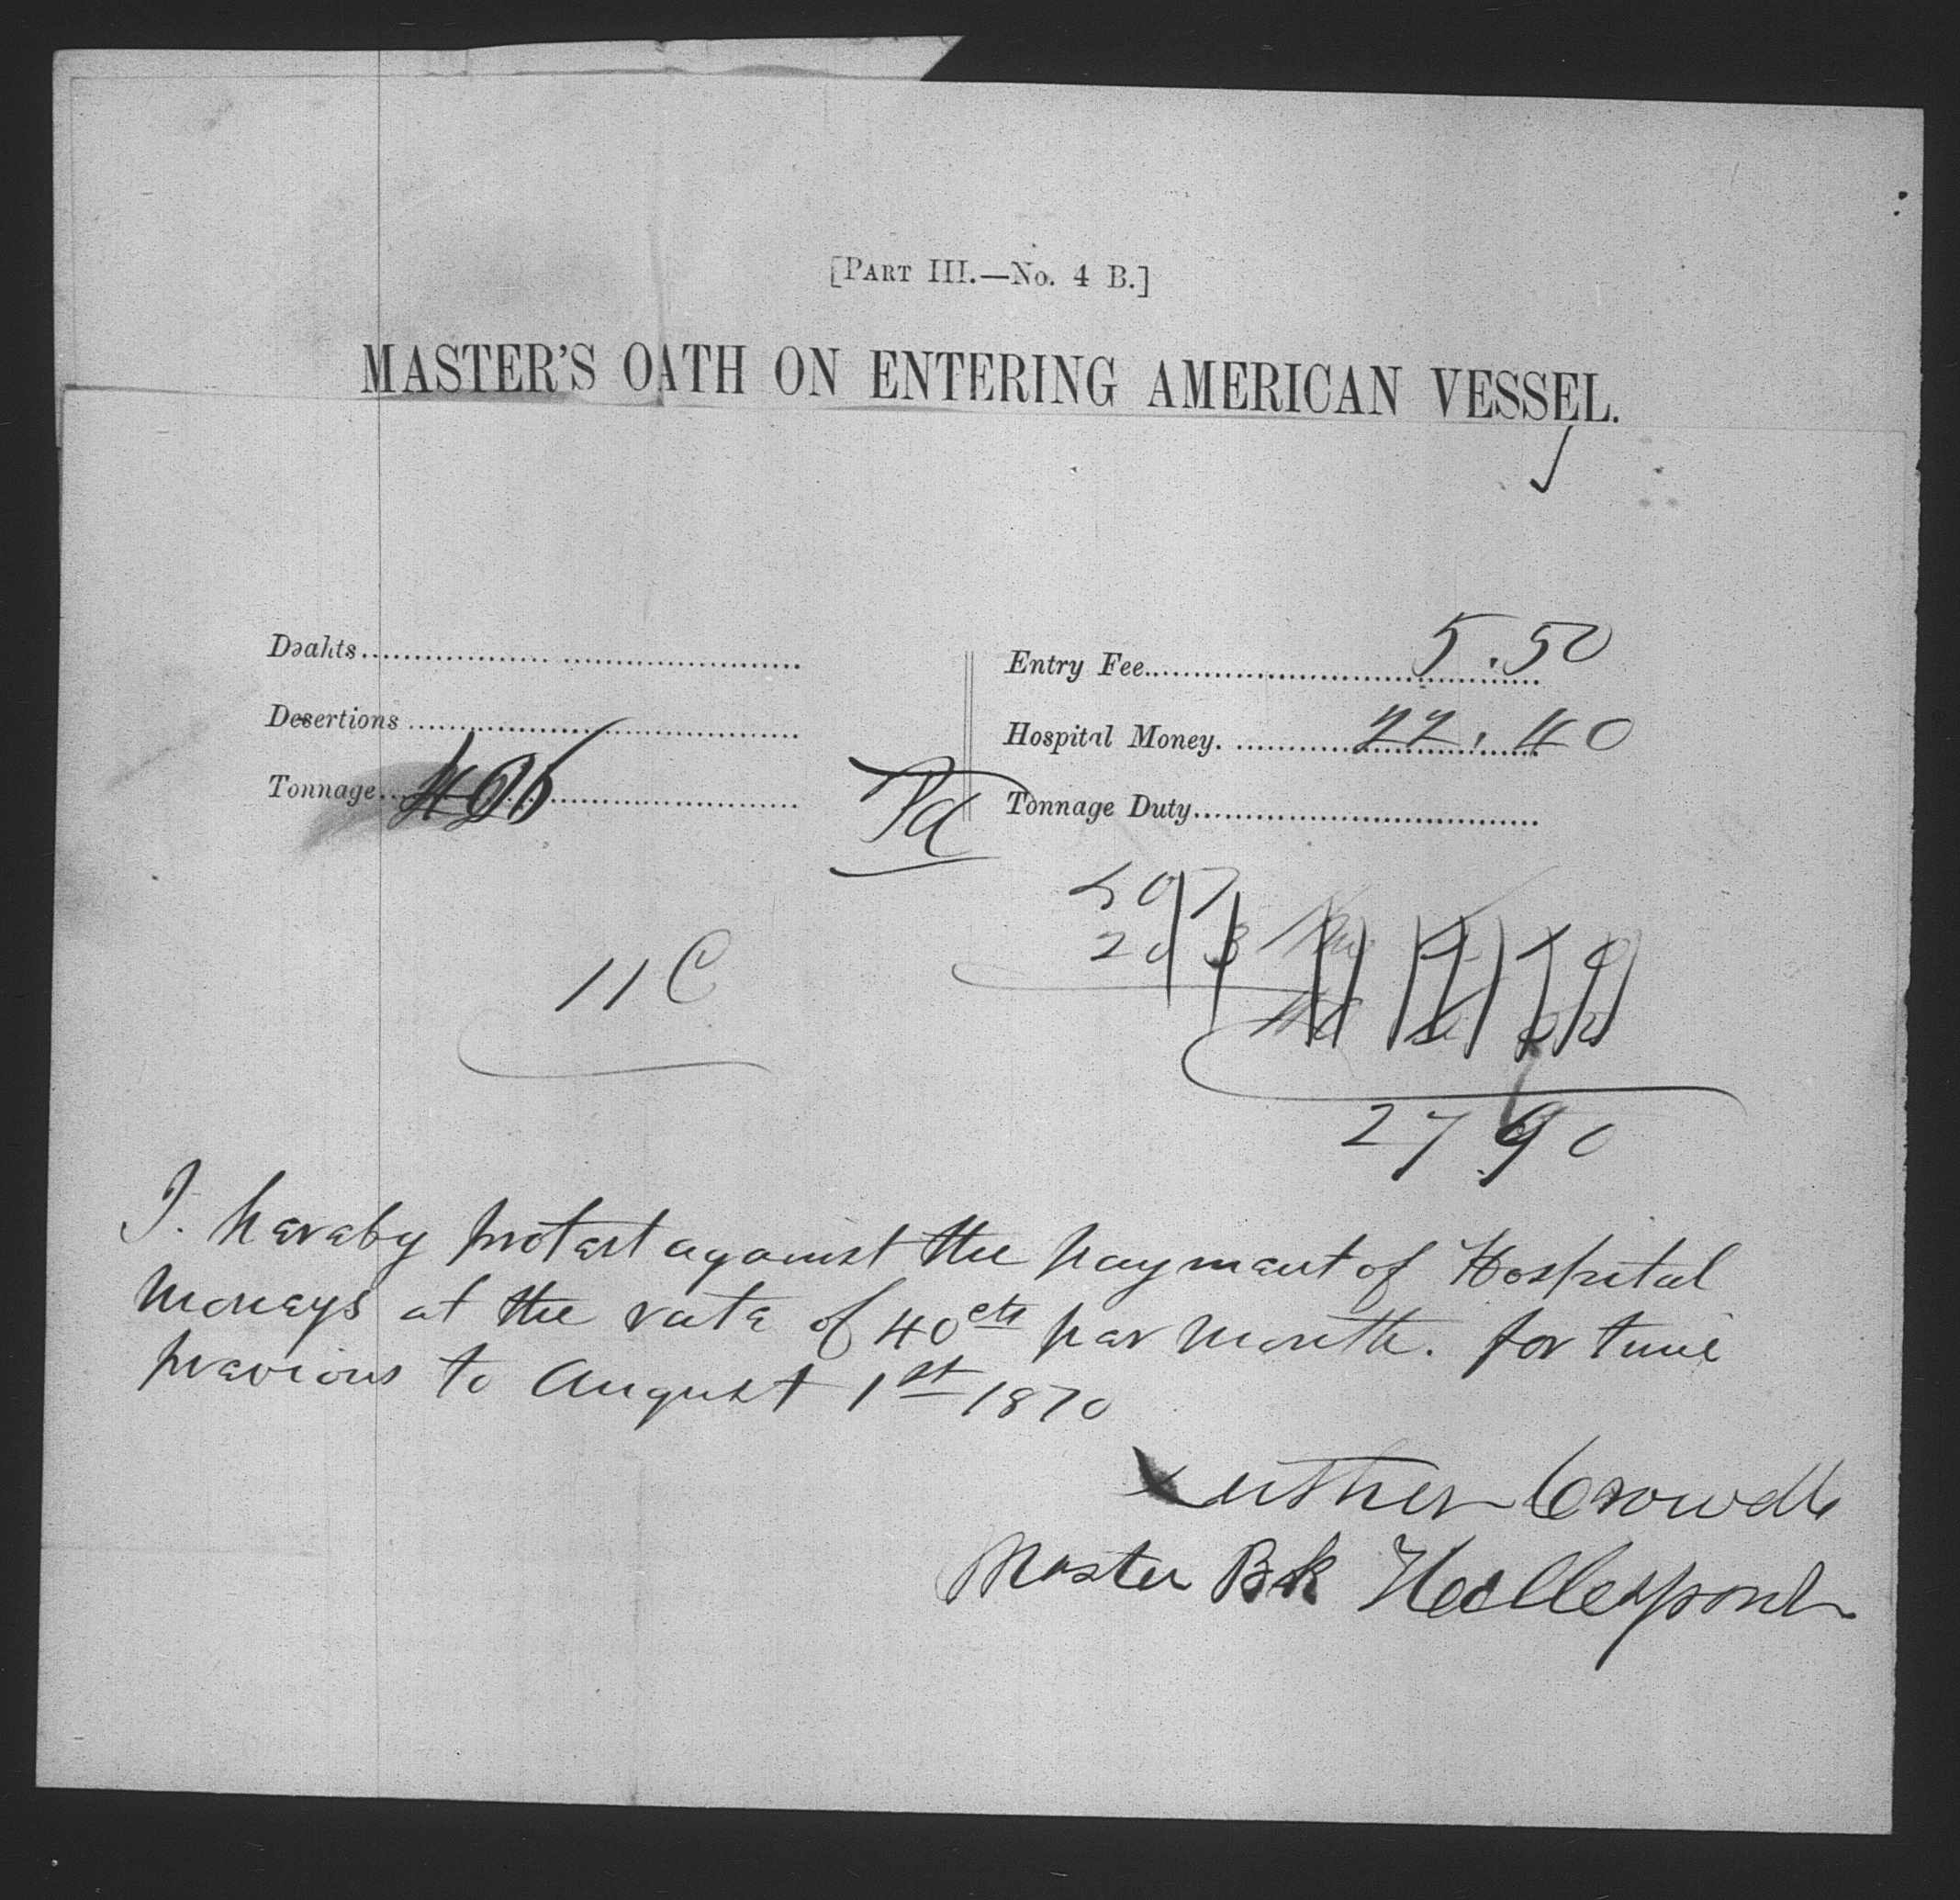 [PART III.—No. 4 B.]
MASTER'S OATH ON ENTERING AMERICAN VESSEL.
Deahts
Desertions
Tonnage
Entry Fee 5.50
Hospital Money. 22.40
Tonnage Duty
11 C
27 90
I. hereby protest against the payment of Hospital
Moneys at the rate of 40 cts per month. for time
previous to August 1st 1870
Luther Crowell
Master Bk Hellespont